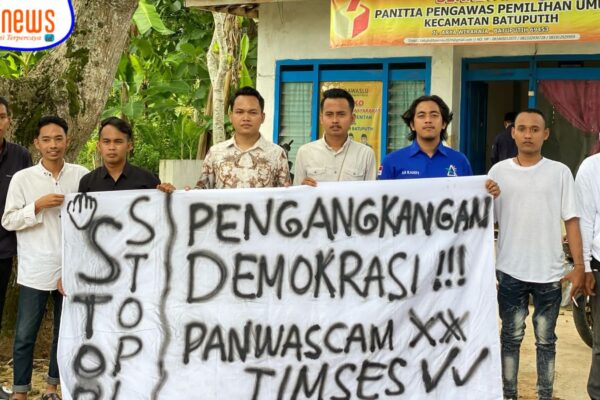 news
Terpercaya
PANITIA PENGAWAS PEMILIHAN UMU
KECAMATAN BATUPUTIH
STOP!
STOP!
PENGANGKANGAN
DEMOKRASI !!!
PANWASCAM XX
TIMSES VV